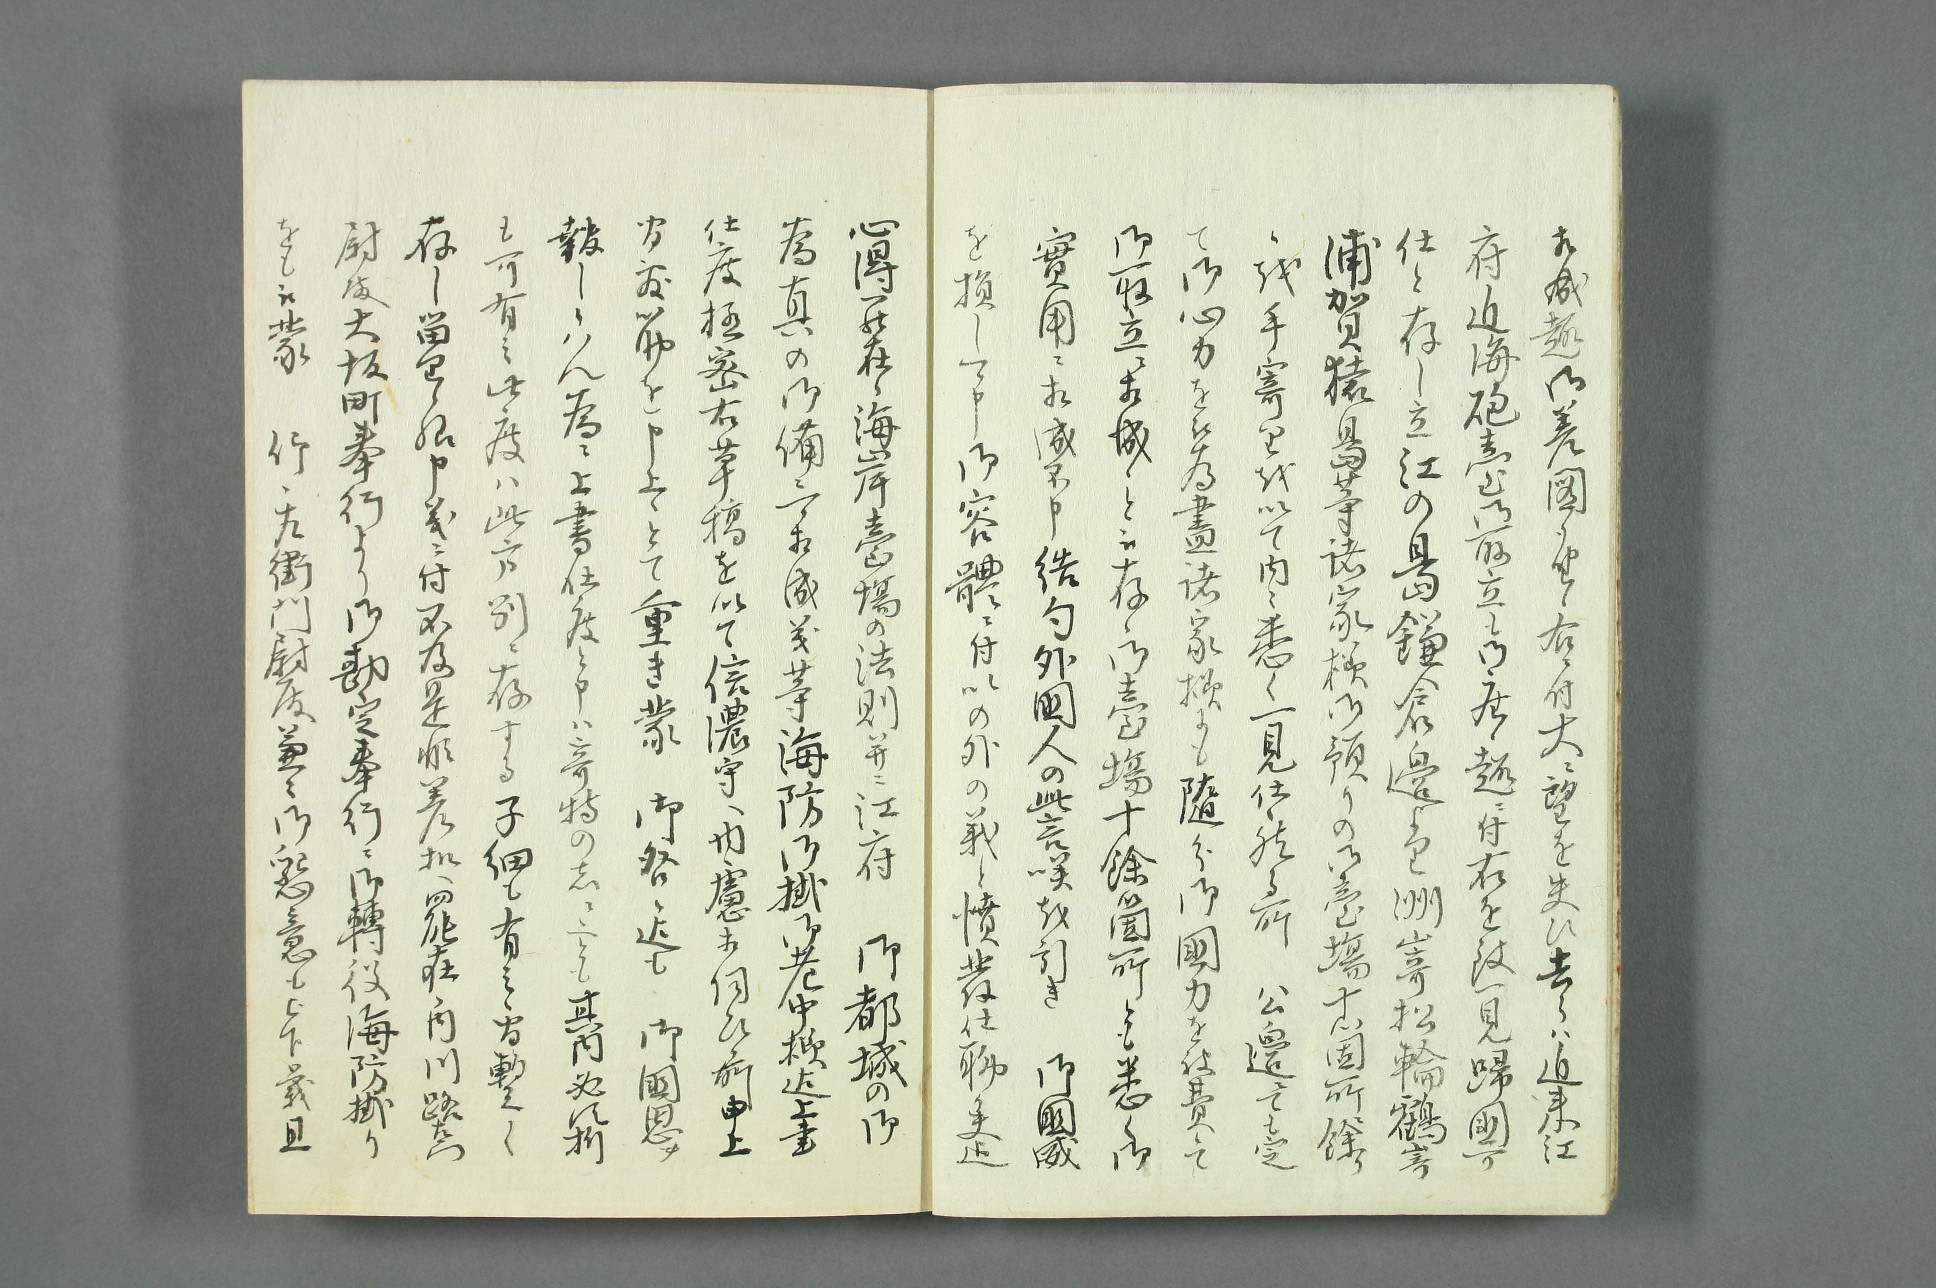 相成趣御差圖有之右ニ付大ニ望を失ひ去らハ近来江
府近海砲臺御取立も御座趣ニ付右を致一見歸國可
仕と存し立江の島鎌倉邊より洲崎松輪鶴崎
浦賀猿島等諸家様御預りの御臺場十箇所餘り
を手寄を以て内々悉く一見仕候所 公邊ニても定
て御心力を被為盡諸家様ニも隨分御國力を被費て
御取立ニ相成と被存御臺場十餘箇所とも悉く御
實用ニ相成不申結句外國人の此言咲を引き 御國威
を損し可申御容體ニ付以の外の義と憤發仕聊乍近
心得罷在海岸臺場の法則并ニ江府 御都城の御
為真の御備ニ可相成義等海防御掛御老中様迄上書
仕度極密右草稿を以て信濃守ヘ内慮相伺候所申上
御筋を申上とて重き蒙 御咎迄も 御國恩
報しらハん為ニ上書仕度と申ハ奇特の志ニとも其内必
も可有之此度ハ此方別ニ存する子細も有之間暫く
存し留り候申義ニ付不及是非差扣ヘ罷在内川路左
尉殿大坂町奉行より御勘定奉行ニ御轉役海防掛り
をも被蒙 仰左衛門尉殿兼々御懇意も被下義且